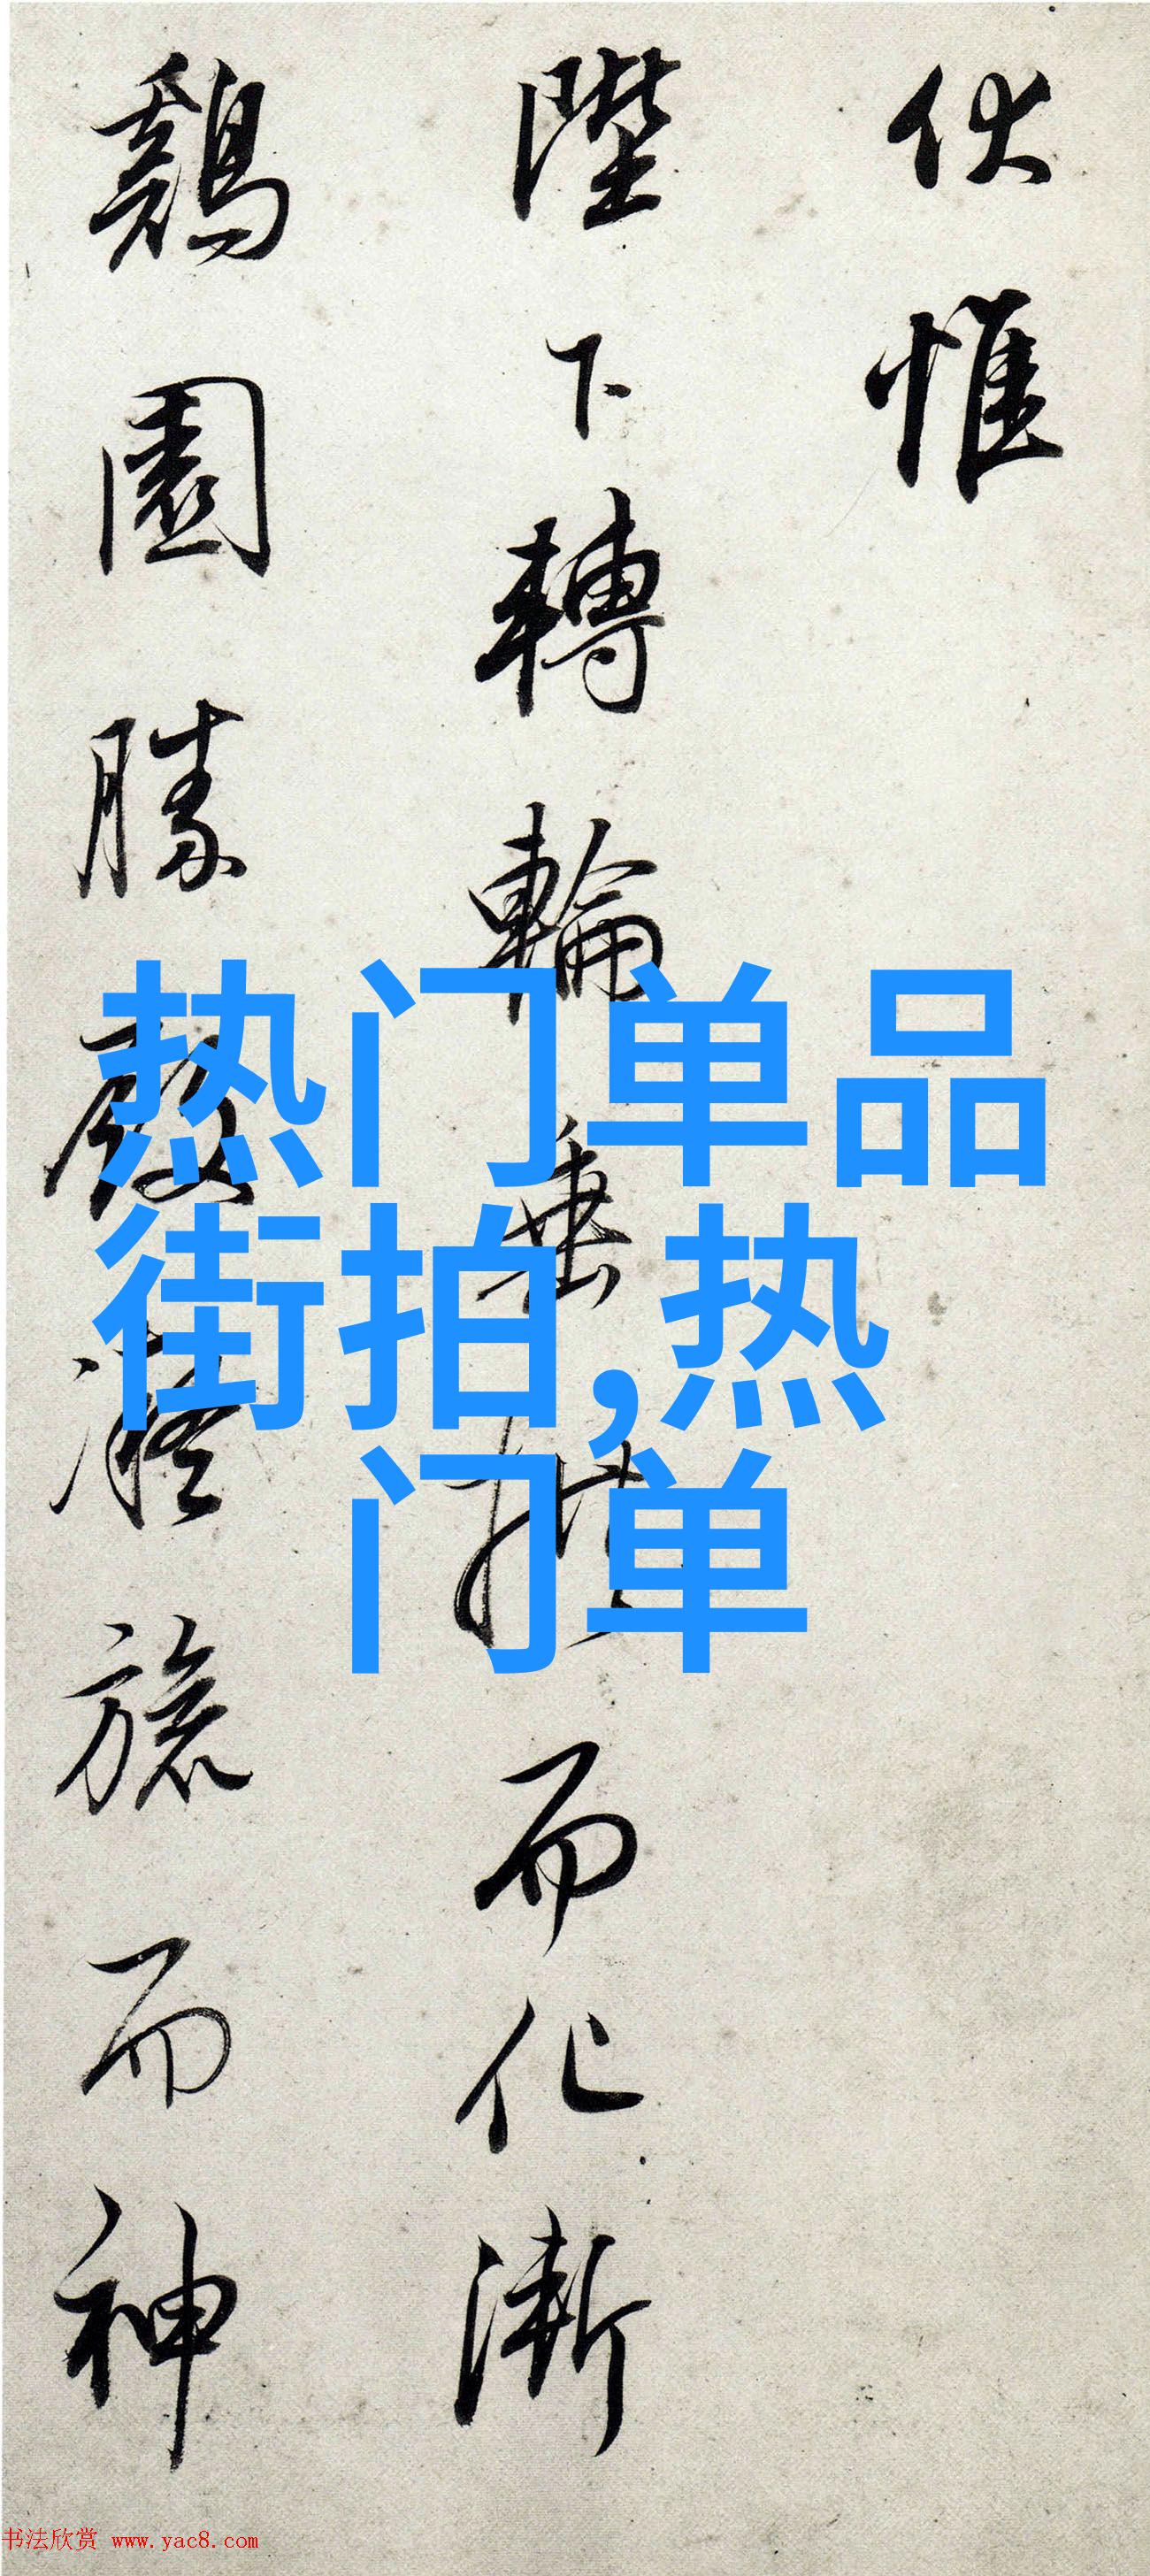 伏惟
陛下轉輪垂拱而化漸
鷄園勝殿凝旒而神
热门单品
街拍,热
门单
书法欣赏 www.yac8.com